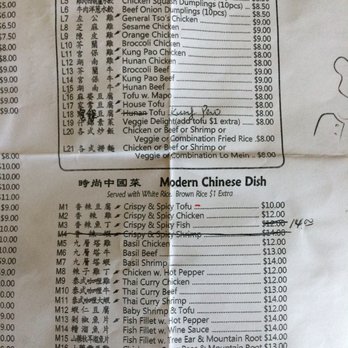 L5 Chicken Squash Dumplings (10pcs) $8.50
L6 Beef Onion Dumplings (10pcs) $8.50
L7 左公雞 General Tso's Chicken $8.00
L8 芝麻雞 Sesame Chicken $8.00
L9 陳皮雞 Orange Chicken $8.00
L10 芥蘭雞 Broccoli Chicken $8.00
L11 宮保雞 Kung Pao Chicken $8.00
L12 湖南雞 Hunan Chicken $8.00
L13 芥蘭牛 Broccoli Beef $8.00
L14 宮保牛 Kung Pao Beef $8.00
L15 湖南牛 Hunan Beef $8.00
L16 麻婆豆腐 Tofu w. Mapo $8.00
L17 家常豆腐 House Tofu $8.00
L18 豆腐 Hunan Tofu Kung Pao $8.00
L19 Veggie Delight (add tofu $1 extra) $8.00
L20 各式炒飯 Chicken or Beef or Shrimp or
Veggie or Combination Fried Rice $8.00
L21 各式撈麵 Chicken or Beef or Shrimp or
Veggie or Combination Lo Mein $8.00
時尚中國菜 Modern Chinese Dish
Served with White Rice. Brown Rice $1 Extra
M1 香辣豆腐 Crispy & Spicy Tofu $10.00
M2 香辣雞 Crispy & Spicy Chicken $12.00
M3 香辣魚 Crispy & Spicy Fish $12.00 14
M4 香辣蝦 Crispy & Spicy Shrimp $14.00
M5 九層塔雞 Basil Chicken $12.00
M6 九層塔牛 Basil Beef $13.00
M7 九層塔蝦 Basil Shrimp $14.00
M8 辣子雞丁 Chicken w. Hot Pepper $12.00
M9 泰式咖喱雞 Thai Curry Chicken $12.00
M10 泰式咖喱牛 Thai Curry Beef $13.00
M11 泰式咖喱蝦 Thai Curry Shrimp $14.00
M12 蝦仁豆腐 Baby Shrimp & Tofu $13.00
M13 剁椒魚片 Fish Fillet w. Hot Pepper $13.00
M14 糟溜魚片 Fish Fillet w. Wine Sauce $13.00
M15 Fish Fillet w. Tree Ear & Mountain Root $13.00